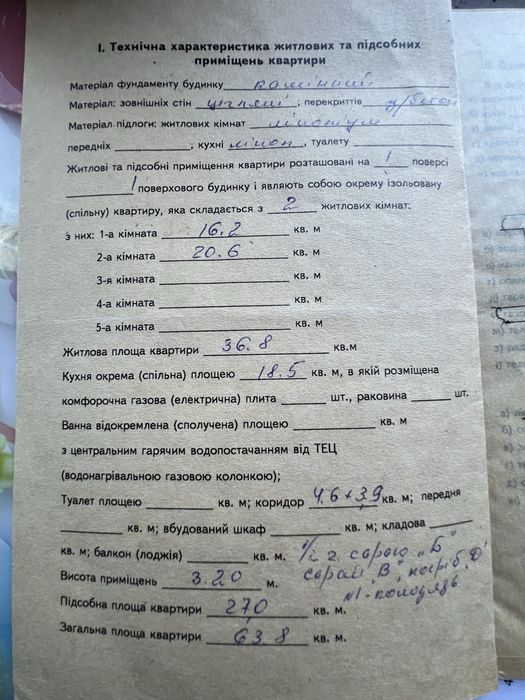 I. Технічна характеристика житлових та підсобних
приміщень квартири
Матеріал фундаменту будинку камінний
Матеріал: зовнішніх стін цегляні; перекриттів з/бетон
Матеріал підлоги: житлових кімнат лінолиум
передніх , кухні лінол, туалету
Житлові та підсобні приміщення квартири розташовані на 1 поверсі
1 поверхового будинку і являють собою окрему ізольовану
(спільну) квартиру, яка складається з 2 житлових кімнат:
з них: 1-а кімната 16.2 кв. м
2-а кімната 20.6 кв. м
3-я кімната кв. м
4-а кімната кв. м
5-а кімната кв. м
Житлова площа квартири 36.8 кв.м
Кухня окрема (спільна) площею 18.5 кв. м, в якій розміщена
комфорочна газова (електрична) плита шт., раковина шт.
Ванна відокремлена (сполучена) площею кв. м
з центральним гарячим водопостачанням від ТЕЦ
(водонагрівальною газовою колонкою);
Туалет площею кв. м; коридор 4.6+3.9 кв. м; передня
кв. м; вбудований шкаф кв. м; кладова
кв. м; балкон (лоджія) кв. м. 1/2 г. сараю „Б"
Висота приміщень 3.20 м. сарай „В", погріб „Д"
N1-колодязь
Підсобна площа квартири 27,0 кв. м.
Загальна площа квартири 63,8 кв. м.